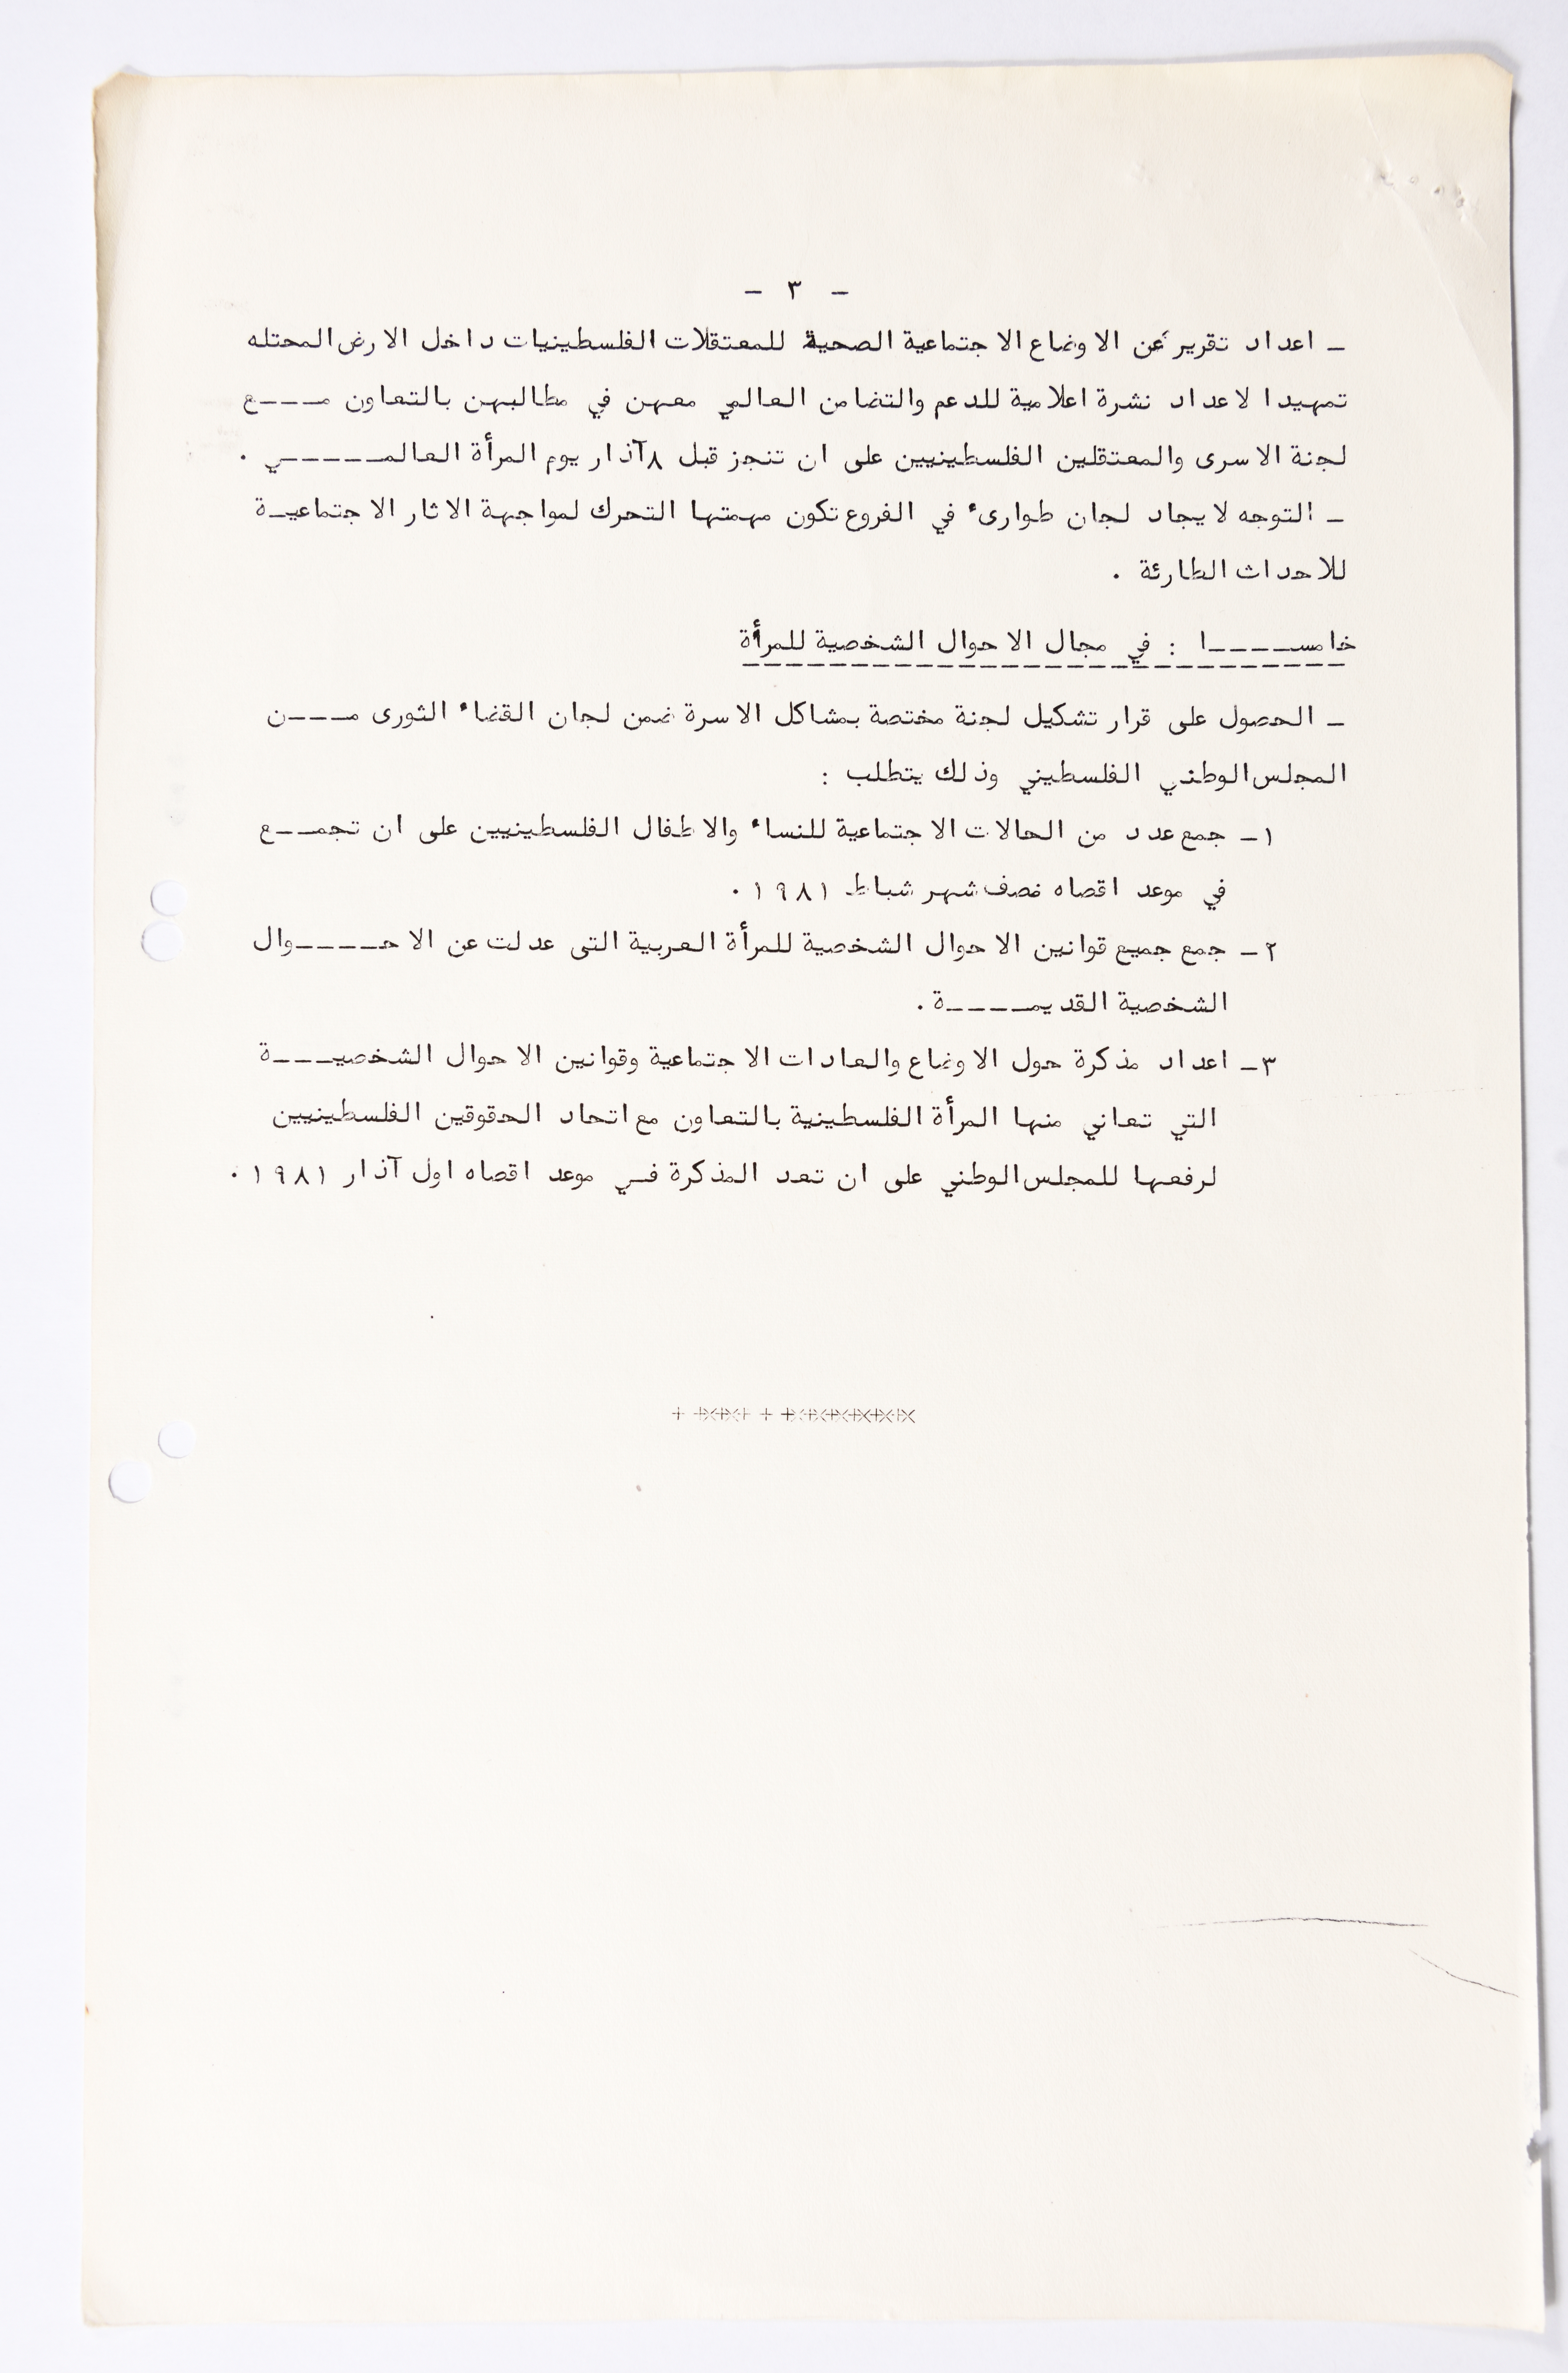 - ٣ -
ـ اعداد تقرير عن الاوضاع الاجتماعية الصحية للمعتقلات الفلسطينيات داخل الارض المحتله
تمهيدا لاعداد نشرة اعلامية للدعم والتضامن العالمي معهن في مطالبهن بالتعاون مــــع
لجنة الاسرى والمعتقلين الفلسطينيين على ان تنجز قبل ٨ آذار يوم المرأة العالمــــــي .
ـ التوجه لايجاد لجان طوارىء في الفروع تكون مهمتها التحرك لمواجهة الاثار الاجتماعيـة
للاحداث الطارئة .
خامســــــا : في مجال الاحوال الشخصية للمرأة
ـ الحصول على قرار تشكيل لجنة مختصة بمشاكل الاسرة ضمن لجان القضاء الثورى مــــن
المجلس الوطني الفلسطيني وذلك يتطلب :
١ـ جمع عدد من الحالات الاجتماعية للنساء والاطفال الفلسطينيين على ان تجمـــع
في موعد اقصاه نصف شهر شباط ١٩٨١ .
٢ـ جمع جميع قوانين الاحوال الشخصية للمرأة العربية التى عدلت عن الاحـــــوال
الشخصية القديمـــــة .
٣ـ اعداد مذكرة حول الاوضاع والعادات الاجتماعية وقوانين الاحوال الشخصيــــة
التي تعاني منها المرأة الفلسطينية بالتعاون مع اتحاد الحقوقين الفلسطينيين
لرفعها للمجلس الوطني على ان تعد المذكرة فـي موعد اقصاه اول آذار ١٩٨١ .